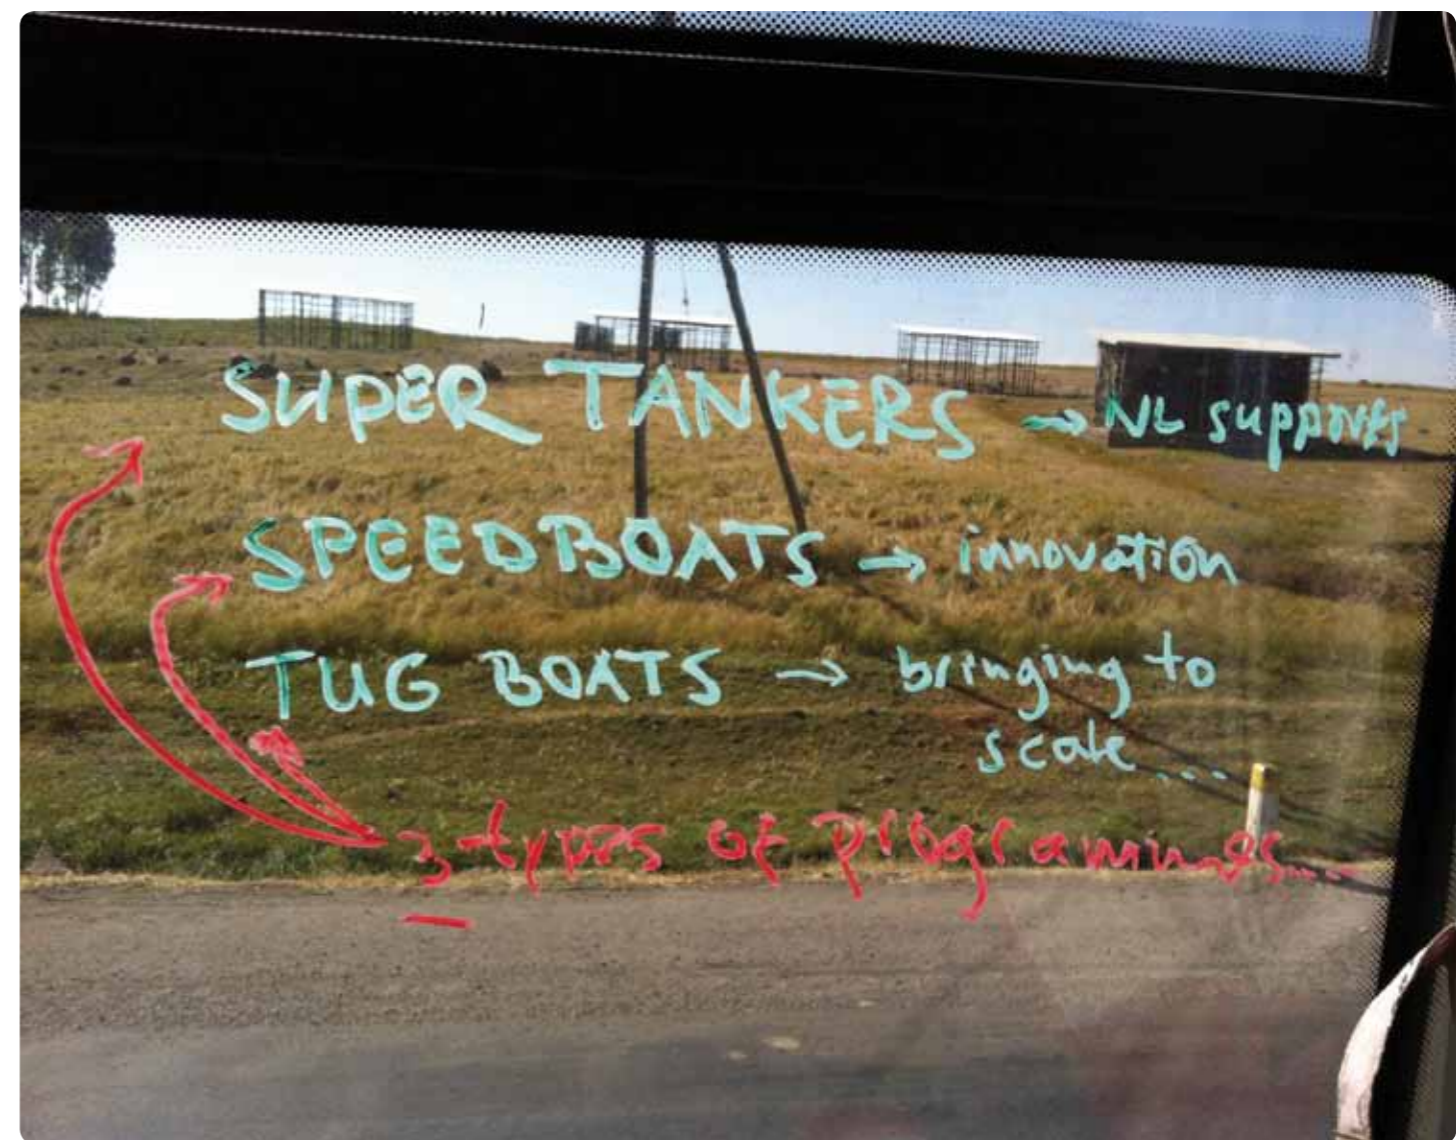 SUPER TANKERS → NL supports
SPEEDBOATS → innovation
TUG BOATS → bringing to
scale...
3 types of programmes....